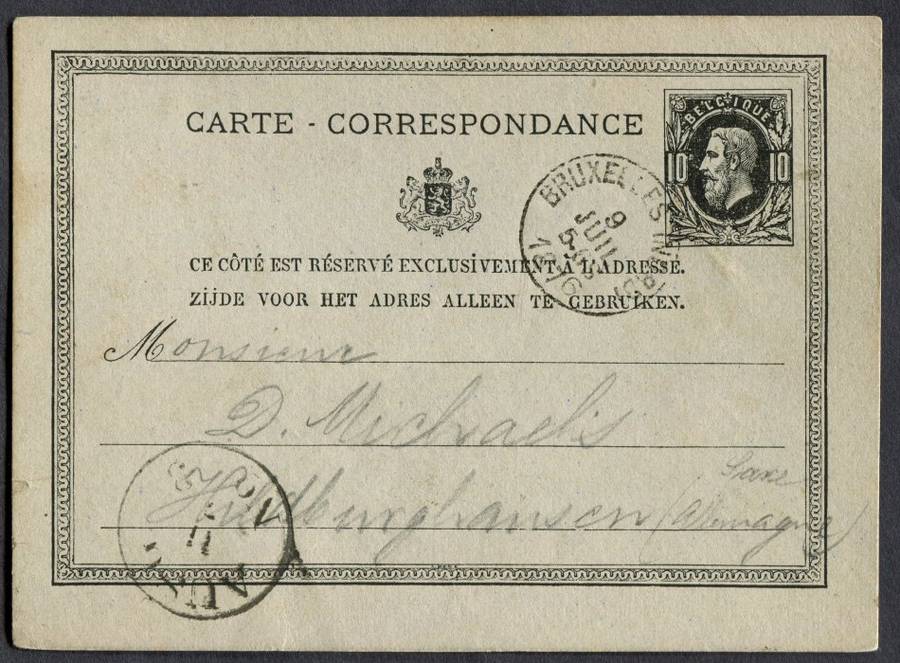 CARTE - CORRESPONDANCE
BELGIQUE
10 10
BRUXELLES
9
JUIL
1876
CE CÔTÉ EST RÉSERVÉ EXCLUSIVEMENT À L'ADRESSE.
ZIJDE VOOR HET ADRES ALLEEN TE GEBRUIKEN.
Monsieur
D. Michaelis
Saxe
Hildburghausen (Allemagne)
AUS